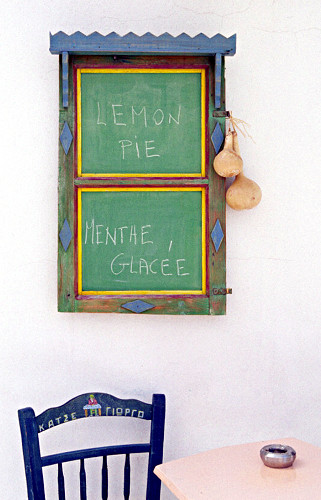 LEMON
PIE
MENTHE
GLACÉE
ΚΑΤΣΕ ΓΙΩΡΓΟ